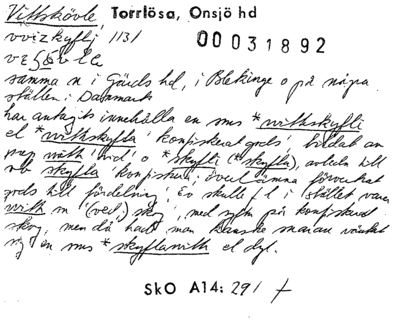 Vittskövle, Torrlösa, Onsjö hd
vvizkyflj 1131 00031892
samma n i Gärds hd, i Blekinge o på några
ställen i Danmark
har antagits innehålla en sms *vithskyfli
el *vithskyfla 'konfiskerat gods', bildat av
prep vith 'vid' o *skyfli (*skyfla), avledn till
vb skyfla 'konfiskera; överlämna förverkat
gods till fördelning'. Ev skulle f l i stället vara
vith m '(ved), skog', med syfte på konfiskerad
skog, men då hade man kanske snarare väntat
sig en sms *skyflavith el dyl.
SkO A14: 291